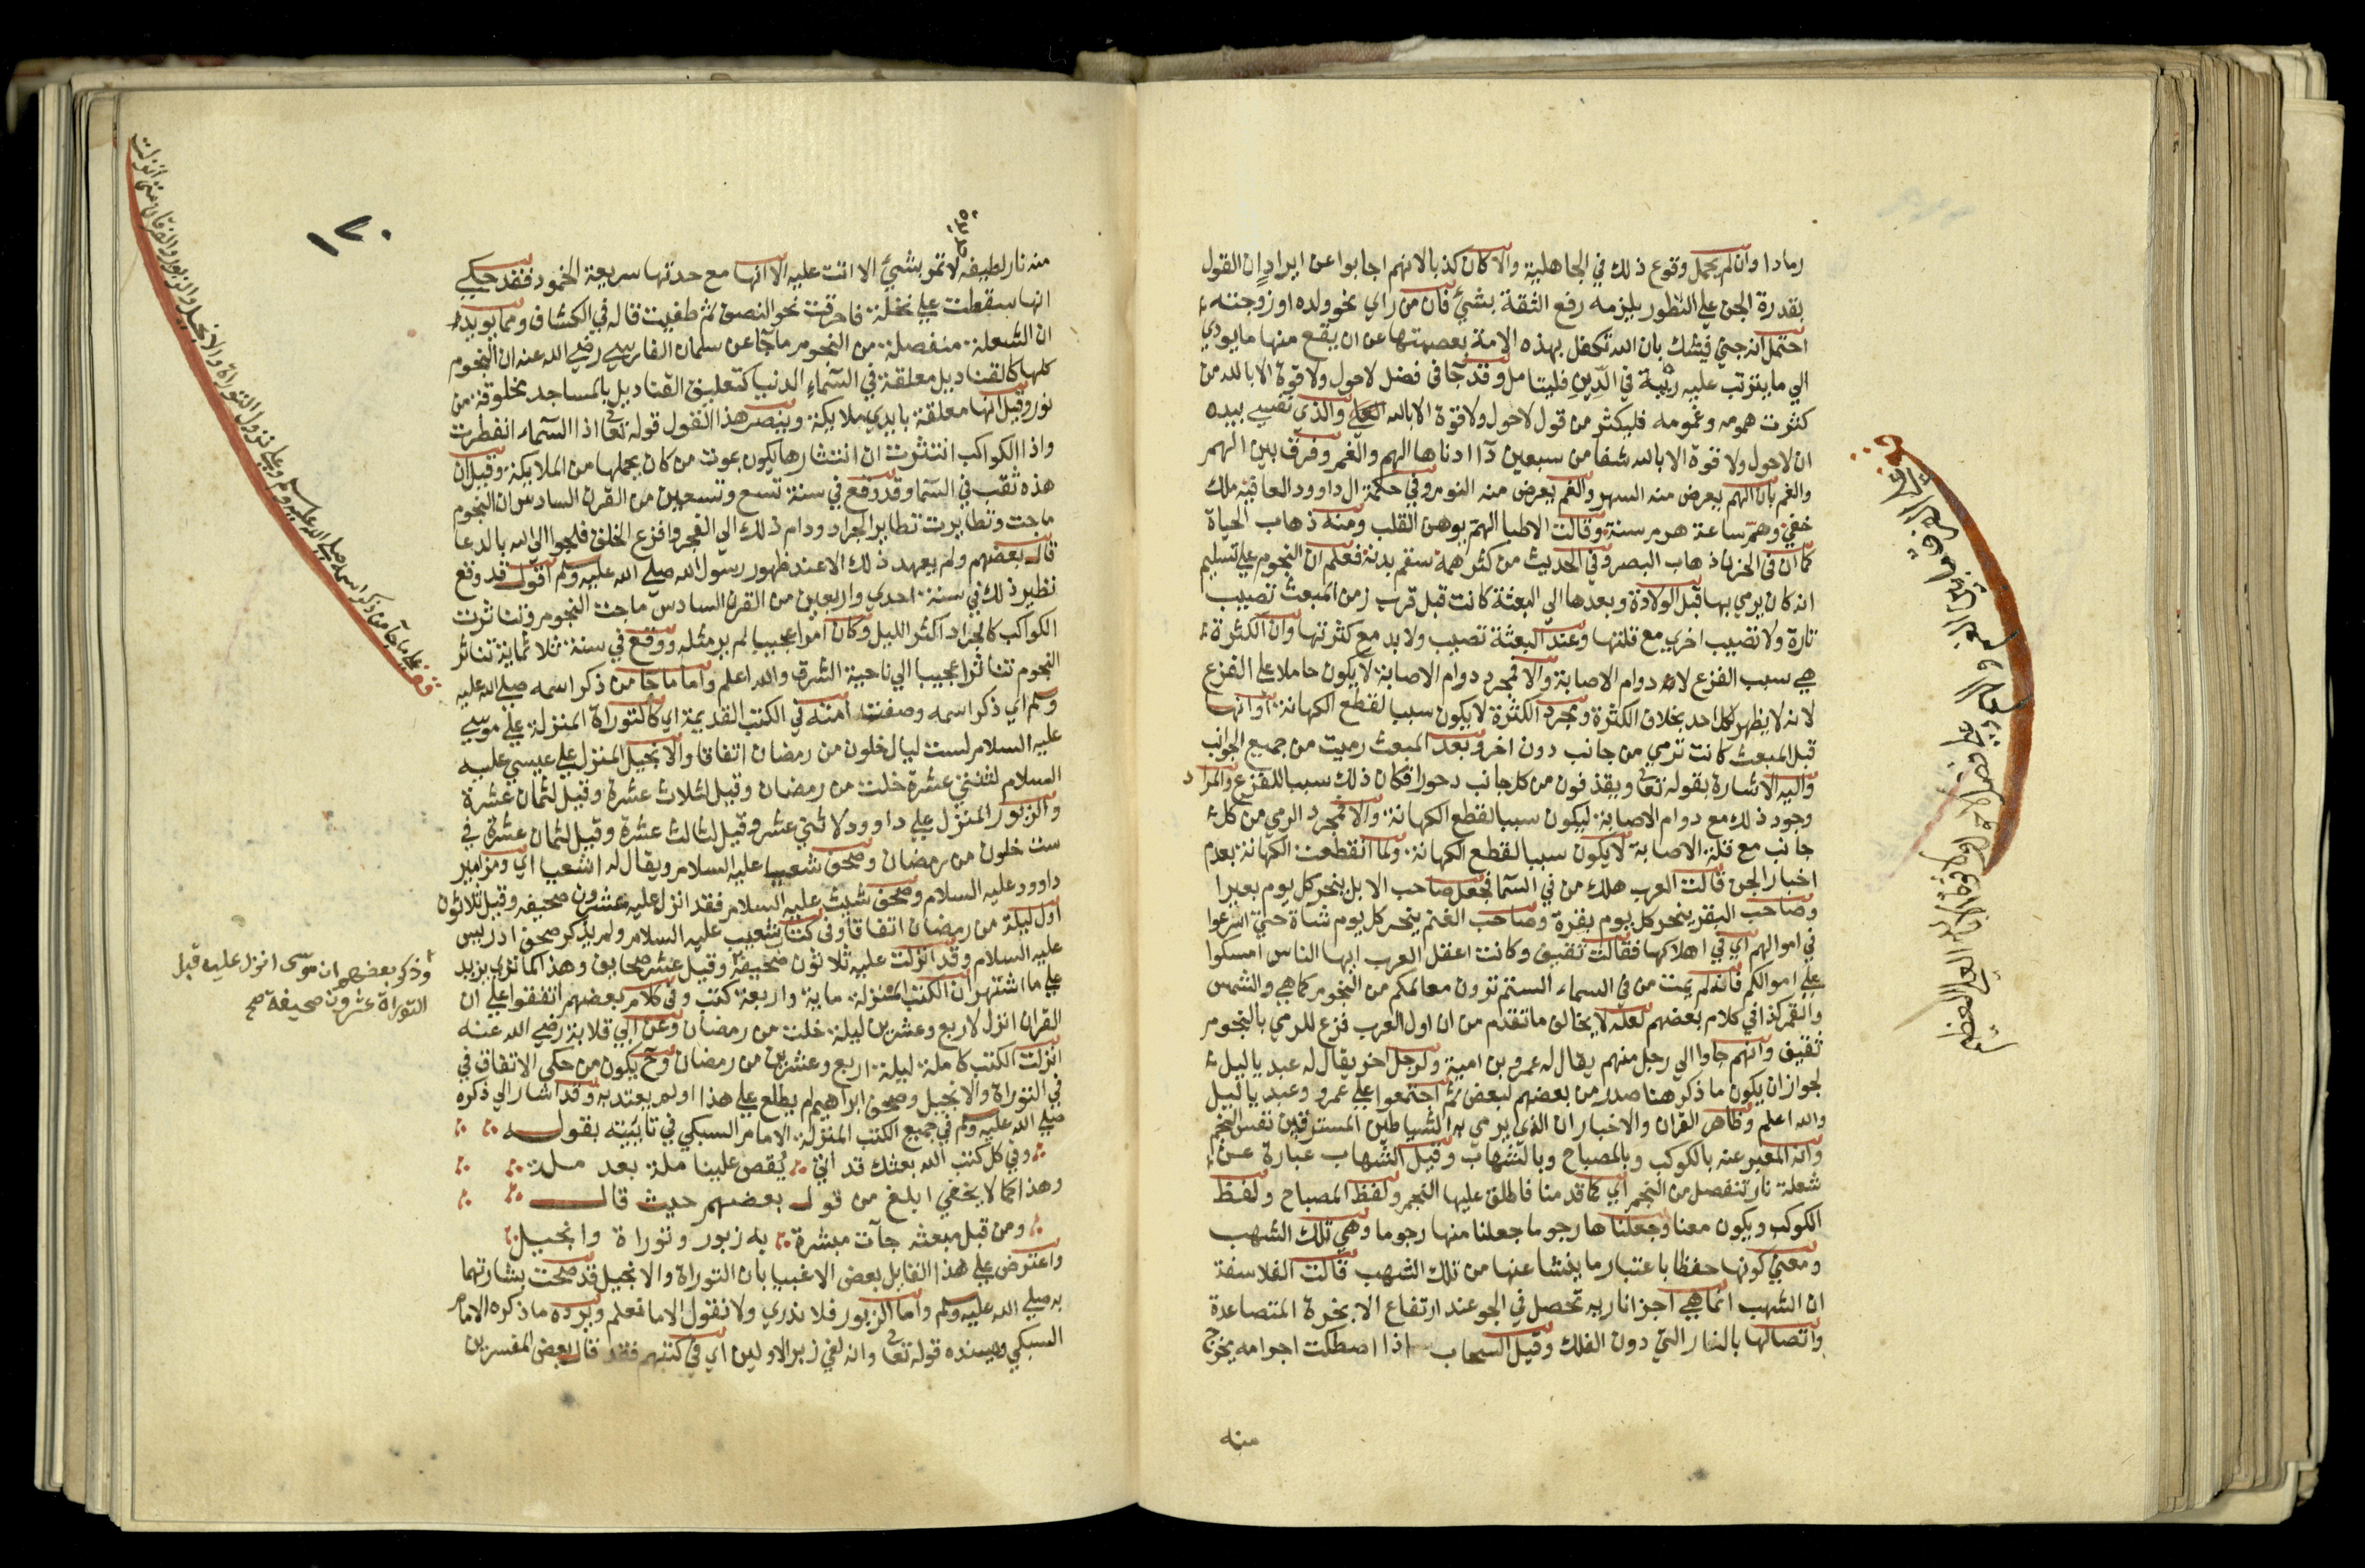 رمادا وان لم يحمل وقوع ذلك في الجاهلية والا كان كذبا لانهم اجابوا عن ايراد ان القول
بقدرة الجن على التطور يلزمه رفع الثقة بشئ فان من راي نحو ولده او زوجته
احتمل انه جني فيشك بان الله تكفل بهذه الامة بعصمتها عن ان يقع منها ما يودي
الي ما يترتب عليه ريبة في الدين فليتامل وقد جا في فضل لاحول ولا قوة الا بالله من
كثرت همومه وغمومه فليكثر من قول لاحول ولا قوة الا بالله والذي نفسي بيده
ان لاحول ولا قوة الا بالله شفا من سبعين دآ ادناها الهم والغم وفرق بين الهم
والغم بان الهم يعرض منه السهر والغم يعرض منه النوم وفي حكمة ال داوود العافية ملك
خفي وهم ساعة هرم سنة وقالت الاطبا الهم يوهن القلب ومنه ذهاب الحياة
كما ان في الحزن ذهاب البصر وفي الحديث من كثر همه سقم بدنه فعلم ان النجوم على تسليم
انه كان يرمي بها قبل الولادة وبعدها الي البعثة كانت قبل قرب زمن المبعث تصيب
تارة ولا تصيب اخري مع قلتها وعند البعثة تصيب ولا بد مع كثرتها وان الكثرة
هي سبب الفزع لا دوام الاصابة والا فمجرد دوام الاصابة لا يكون حاملا على الفزع
لانه لا يظهر لكل احد بخلاف الكثرة ومجرد الكثرة لا يكون سببا لقطع الكهانة او انها
قبل المبعث كانت ترمي من جانب دون اخر وبعد المبعث رميت من جميع الجوانب
واليه الاشارة بقوله تعا ويقذفون من كل جانب دحورا فكان ذلك سببا للفزع والمراد
وجود ذلك مع دوام الاصابة ليكون سببا لقطع الكهانة والا فمجرد الرمي من كل
جانب مع قلة الاصابة لا يكون سببا لقطع الكهانة ولما انقطعت الكهانة بعدم
اخبار الجن قالت العرب هلك من في السما فجعل صاحب الابل ينحر كل يوم بعيرا
وصاحب البقر ينحر كل يوم بقرة وصاحب الغنم ينحر كل يوم شاة حتي اسرعوا
في اموالهم اي في اهلاكها فقالت ثقيف وكانت اعقل العرب ايها الناس امسكوا
على اموالكم فانه لم يمت من في السماء الستم ترون معالمكم من النجوم كما هي والشمس
والقمر كذا في كلام بعضهم لعله لا يخالف ما تقدم من ان اول العرب فزع للرمي بالنجوم
ثقيف وانهم جاوا الي رجل منهم يقال له عمرو بن امية ولرجل اخر يقال له عبد ياليل
لجواز ان يكون ما ذكر هنا صدر من بعضهم لبعض ثم اجتمعوا على عمرو وعبد ياليل
والله اعلم وظاهر القران والاخبار ان الذي يرمي به الشياطين المسترقين نفس النجم
وانه المعبر عنه بالكوكب وبالمصباح وبالشهاب وقيل الشهاب عبارة عن
شعلة نار تنفصل من النجم اي كما قدمنا فاطلق عليها النجم ولفظ المصباح ولفظ
الكوكب ويكون معنا وجعلناها رجوما جعلنا منها رجوما وهي تلك الشهب
ومعني كونها حفظا باعتبار ما ينشا عنها من تلك الشهب قالت الفلاسفة
ان الشهب انما هي اجزا نارية تحصل في الجو عند ارتفاع الابخرة المتصاعدة
واتصالها بالنار التي دون الفلك وقيل السحاب اذا اصطكت اجرامه يخرج
منه
على فضل لاحول ولا قوة الا بالله العلي العظيم
١٧٠
منه نار لطيفه لا تمر بشئ الا اتت عليه الا انها مع حدتها سريعة الخمود فقد حكي
انها سقطت على نخلة فاحرقت نحو النصف ثم طفيت قاله في الكشاف ومما يويد
ان الشعلة منفصلة من النجوم ما جآ عن سلمان الفارسي رضي الله عنه ان النجوم
كلها كالقناديل معلقة في السماء الدنيا كتعليق القناديل بالمساجد مخلوقة من
نور وقيل انها معلقة بايدي ملايكة وينصر هذا القول قوله تعا اذا السماء انفطرت
واذا الكواكب انتثرت ان انتثارها يكون بموت من كان يحملها من الملايكة وقيل ان
هذه ثقب في السما وقد وقع في سنة تسع وتسعين من القرن السادس ان النجوم
ماجت وتطايرت تطاير الجراد ودام ذلك الي الفجر وافزع الخلق فلجوا الي الله بالدعا
قال بعضهم ولم يعهد ذلك الا عند ظهور رسول الله صلي الله عليه وسلم اقول قد وقع
نظير ذلك في سنة احدي واربعين من القرن السادس ماجت النجوم وتناثرت
الكواكب كالجراد اكثر الليل وكان امرا عجيبا لم ير مثله ووقع في سنة ثلاثماية تناثر
النجوم تناثرا عجيبا الي ناحية الشرق والله اعلم واما ما جا من ذكر اسمه صلي الله عليه
وسلم اي ذكر اسمه وصفته امته في الكتب القديمة اي كالتوراة المنزلة على موسي
عليه السلام لست ليال خلون من رمضان اتفاقا والانجيل المنزل على عيسي عليه
السلام لثنتي عشرة خلت من رمضان وقيل لثلاث عشرة وقيل لثمان عشرة
والزبور المنزل على داوود لاثني عشر وقيل لثالث عشرة وقيل لثمان عشرة في
ست خلون من رمضان وصحف شعيبا عليه السلام ويقال له اشعيا اي ومزامير
داوود عليه السلام وصحف شيث عليه السلام فقد انزل عليه عشرون صحيفه وقيل ثلاثون
اول ليلة من رمضان اتفاقا وفي كتاب شعيب عليه السلام ولم يذكر صحف ادريس
عليه السلام وقد انزلت عليه ثلاثون صحيفة وقيل عشر صحايف وهذا كما تري يزيد
على ما اشتهر ان الكتب المنزلة ماية واربعة كتب وفي كلام بعضهم اتفقوا على ان
القران انزل لاربع وعشرين ليلة خلت من رمضان وعن ابي قلابة رضي الله عنه
انزلت الكتب كاملة ليلة اربع وعشرين من رمضان وح يكون من حكي الاتفاق في
في التوراة والانجيل وصحف ابراهيم لم يطلع على هذا او لم يعتد به وقد اشار الي ذكره
صلي الله عليه وسلم في جميع الكتب المنزلة الامام السبكي في تاييته بقوله
وفي كل كتب الله بعثك قد اتي يُقص علينا ملة بعد ملة
وهذا كما لا يخفي ابلغ من قول بعضهم حيث قال
ومن قبل مبعثه جآت مبشرة به زبور وتوراة وانجيل
واعترض على هذا القايل بعض الاغبيا بان التوراة والانجيل قد صحت بشارتهما
به صلي الله عليه وسلم واما الزبور فلا ندري ولا نقول الا ما نعلم ويرده ما ذكره الامام
السبكي ويسنده قوله تعا وانه لفي زبر الاولين اي في كتبهم فقد قال بعض المفسرين
وذكر بعضهم ان موسى انزل عليه قبل
التوراة عشرون صحيفة صح
قف على ما جا من ذكر اسمه صلي الله عليه وسلم وعلى نزول التوراة والانجيل والزبور والفرقان متى انزلت